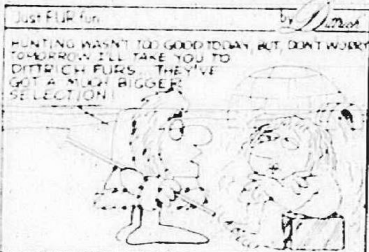 Just FUR fun by Dittrich
HUNTING WASN'T TOO GOOD TODAY, BUT, DON'T WORRY
TOMORROW I'LL TAKE YOU TO
DITTRICH FURS. THEY'VE
GOT A MUCH BIGGER
SELECTION!